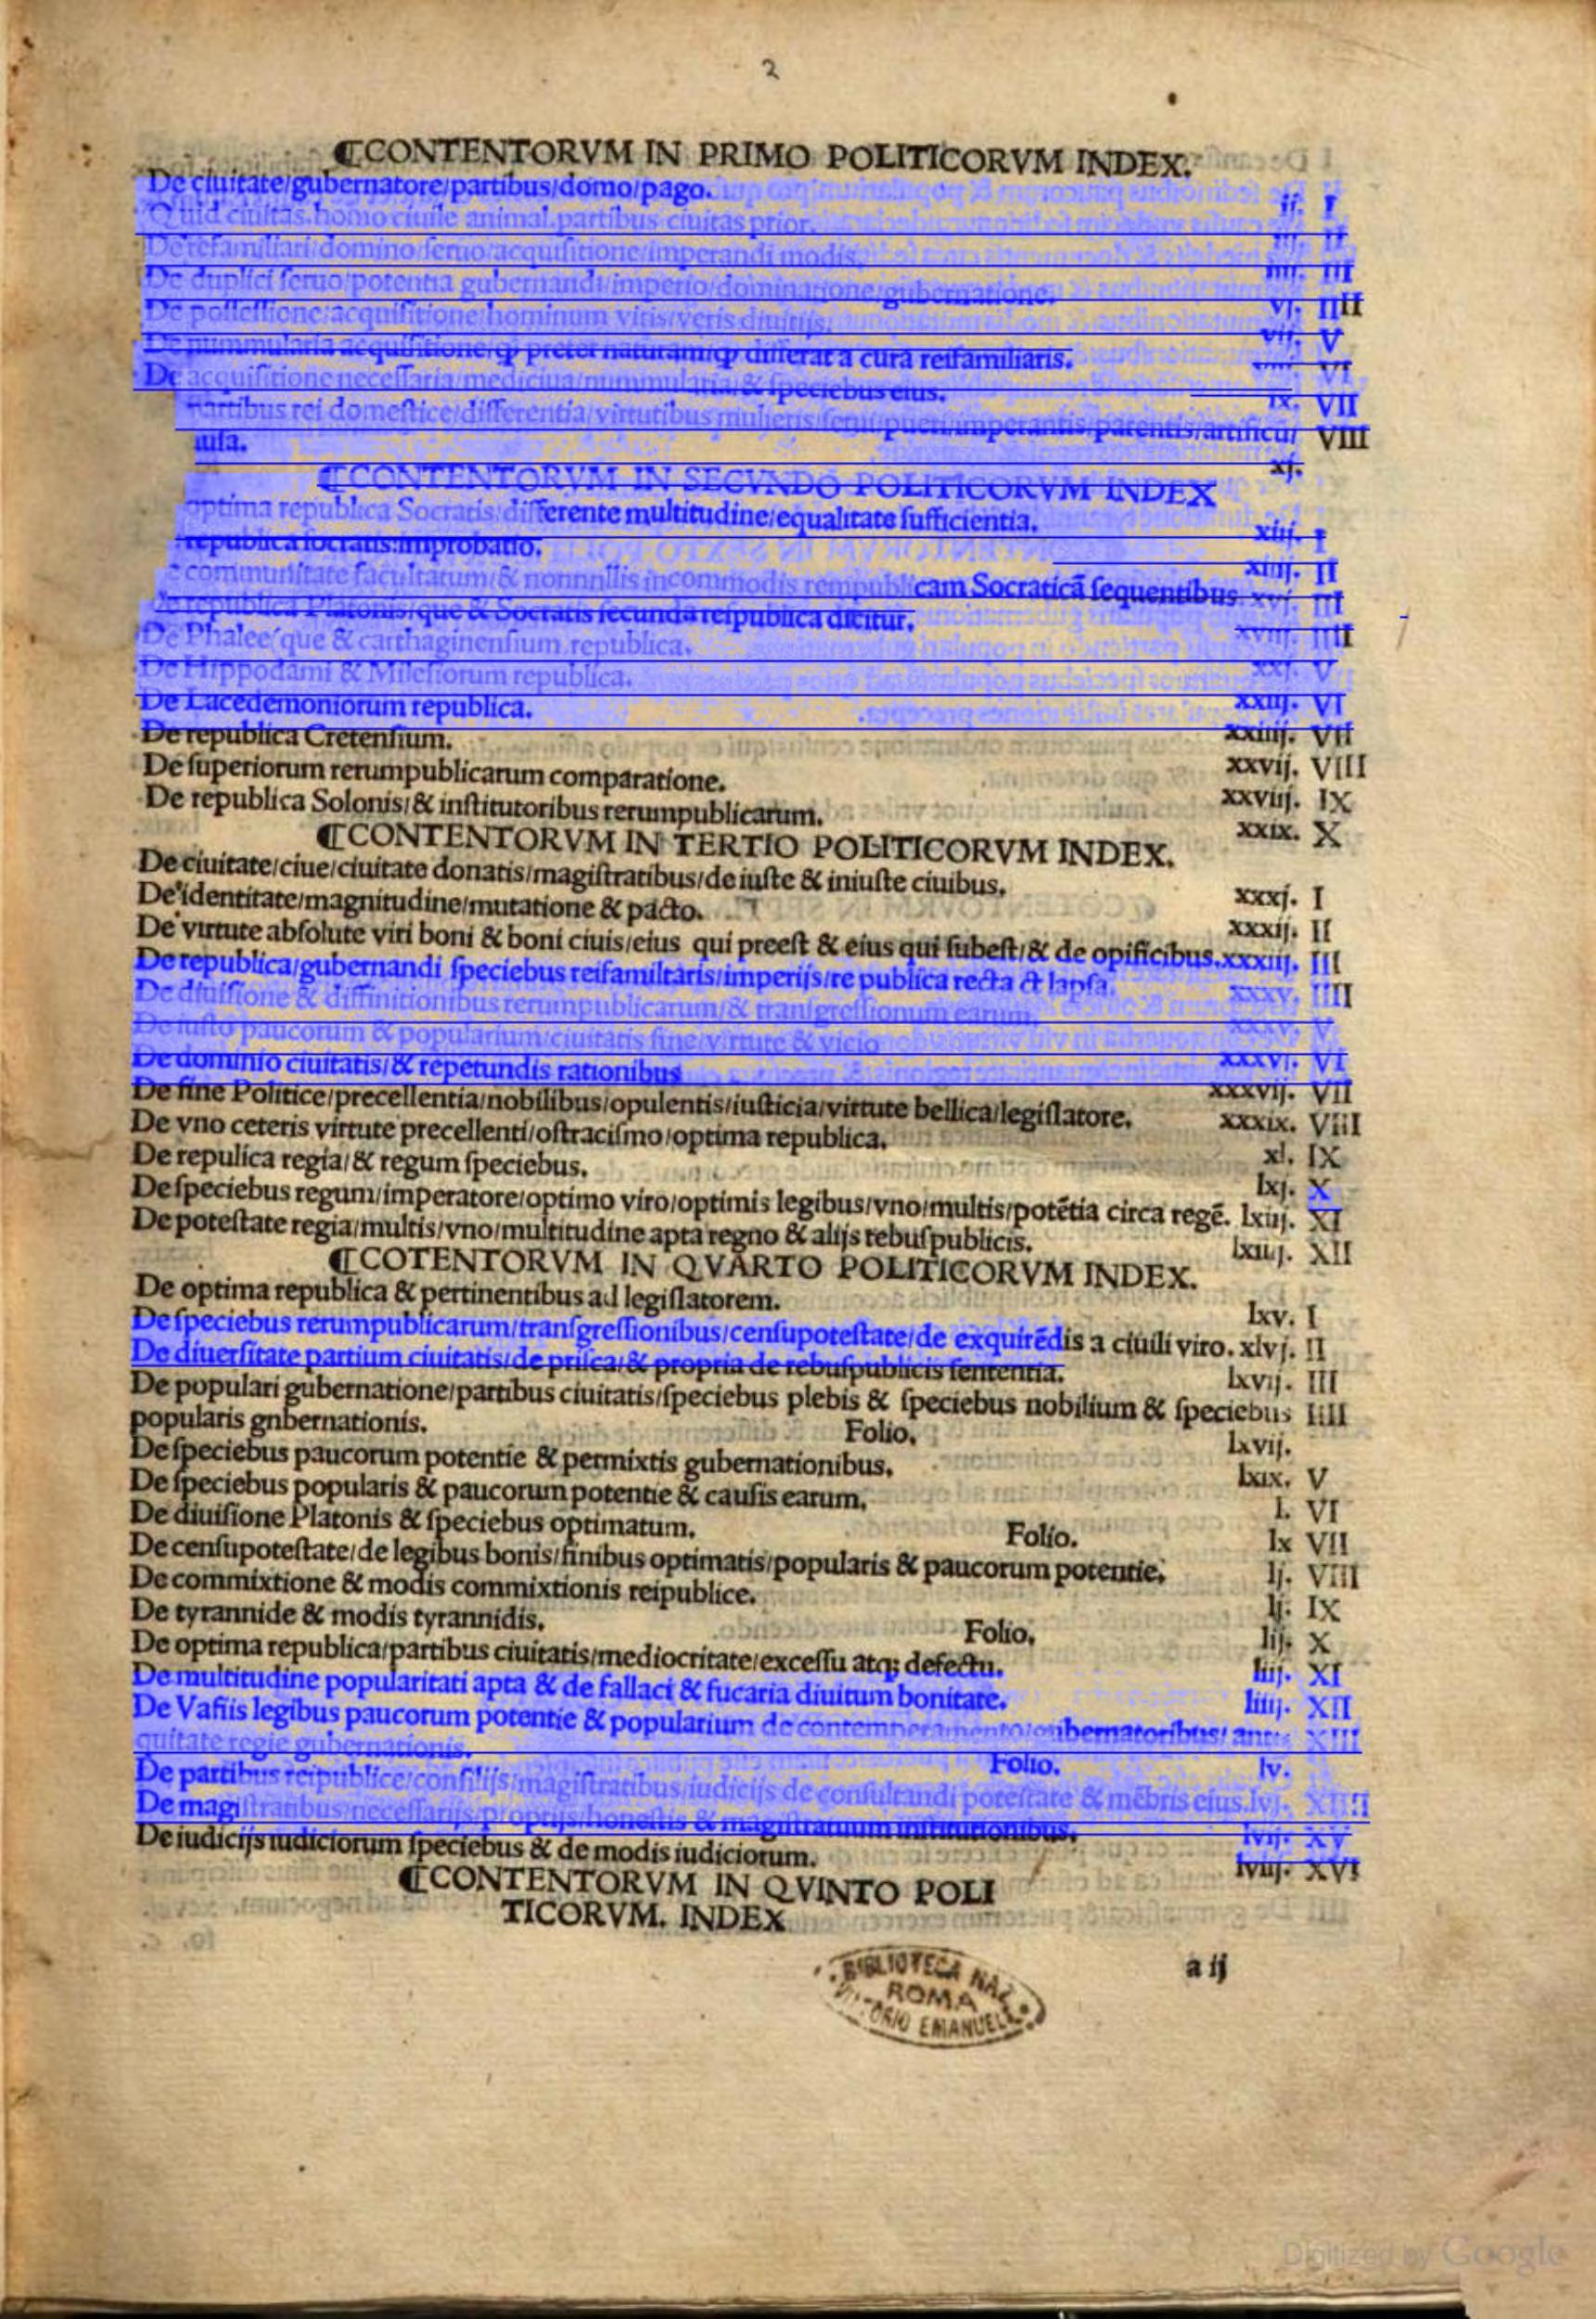 2
⁋CONTENTORVM IN PRIMO POLITICORVM INDEX.
De ciuitate/gubernatore/partibus/domo/pago. ij. I
Quid ciuitas.homo ciuile animal.partibus ciuitas prior. iij. II
De refamiliari/domino/seruo/acquisitione/imperandi modis. iiij. III
De duplici seruo/potentia gubernandi/imperio/dominatione/gubernatione. vj. IIII
De possessione/acquisitione/hominum vitis/veris diuitijs. vij. V
De nummularia acquisitione/ꝙ preter naturam/ꝙ differat a cura reifamiliaris. viij. VI
De acquisitione necessaria/mediciua/nummularia/& speciebus eius. ix. VII
partibus rei domestice/differentia/virtutibus mulieris/serui/pueri/imperantis/parentis/artificū/ VIII
iusa. xj.
⁋CONTENTORVM IN SECVNDO POLITICORVM INDEX
optima republica Socratis/differente multitudine/equalitate sufficientia. xiij. I
republica socratis improbatio. xiiij. II
e communitate facultatum/& nonnnllis incommodis rempublicam Socraticā sequentibus xvj. III
de republica Platonis/que & Socratis secunda respublica dicitur. xviij. IIII
De Phalee/que & carthaginensium republica. xxj. V
De Hippodami & Milesiorum republica. xxiij. VI
De Lacedemoniorum republica. xxiiij. VII
De republica Cretensium. xxvij. VIII
De superiorum rerumpublicarum comparatione. xxviij. IX
De republica Solonis/& institutoribus rerumpublicarum. xxix. X
⁋CONTENTORVM IN TERTIO POLITICORVM INDEX.
De ciuitate/ciue/ciuitate donatis/magistratibus/de iuste & iniuste ciuibus. xxxj. I
De identitate/magnitudine/mutatione & pacto. xxxij. II
De virtute absolute viri boni & boni ciuis/eius qui preest & eius qui subest/& de opificibus. xxxiij. III
De republica/gubernandi speciebus reifamiliaris/imperijs/re publica recta & lapsa. xxxv. IIII
De diuisione & diffinitionibus rerumpublicarum/& transgressionum earum. xxxv. V
De iusto paucorum & popularium/ciuitatis fine/virtute & vicio xxxvj. VI
De dominio ciuitatis/& repetundis rationibus xxxvij. VII
De fine Politice/precellentia/nobilibus/opulentis/iusticia/virtute bellica/legislatore. xxxix. VIII
De vno ceteris virtute precellenti/ostracismo/optima republica. xl. IX
De repulica regia/& regum speciebus. lxj. X
De speciebus regum/imperatore/optimo viro/optimis legibus/vno/multis/potētia circa regē. lxiij. XI
De potestate regia/multis/vno/multitudine apta regno & alijs rebuspublicis. lxiiij. XII
⁋COTENTORVM IN QVARTO POLITICORVM INDEX.
De optima republica & pertinentibus ad legislatorem. lxv. I
De speciebus rerumpublicarum/transgressionibus/censupotestate/de exquirēdis a ciuili viro. xlvj. II
De diuersitate partium ciuitatis/de prisca/& propria de rebuspublicis sententia. lxvij. III
De populari gubernatione/partibus ciuitatis/speciebus plebis & speciebus nobilium & speciebus IIII
popularis gnbernationis. Folio. lxvij.
De speciebus paucorum potentie & permixtis gubernationibus. lxix. V
De speciebus popularis & paucorum potentie & causis earum. l. VI
De diuisione Platonis & speciebus optimatum. Folio. lx VII
De censupotestate/de legibus bonis/finibus optimatis/popularis & paucorum potentie. lj. VIII
De commixtione & modis commixtionis reipublice. lj. IX
De tyrannide & modis tyrannidis. Folio. lij. X
De optima republica/partibus ciuitatis/mediocritate/excessu atq; defectu. liij. XI
De multitudine popularitati apta & de fallaci & fucaria diuitum bonitate. liiij. XII
De Vafiis legibus paucorum potentie & popularium de contemperamento/gubernatoribus/ anti XIII
quitate regie gubernationis. Folio. lv.
De partibus reipublice/consilijs/magistratibus/iudicijs de consultandi potestate & mēbris eius. lvj. XIIII
De magistratibus/necessarijs/proprijs/honestis & magistratuum institutionibus. lvij. XV
De iudicijs iudiciorum speciebus & de modis iudiciorum. lviij. XVI
⁋CONTENTORVM IN QVINTO POLI
TICORVM. INDEX
a ij
BIBLIOTECA NAZ.
ROMA
VITTORIO EMANUELE
Digitized by Google